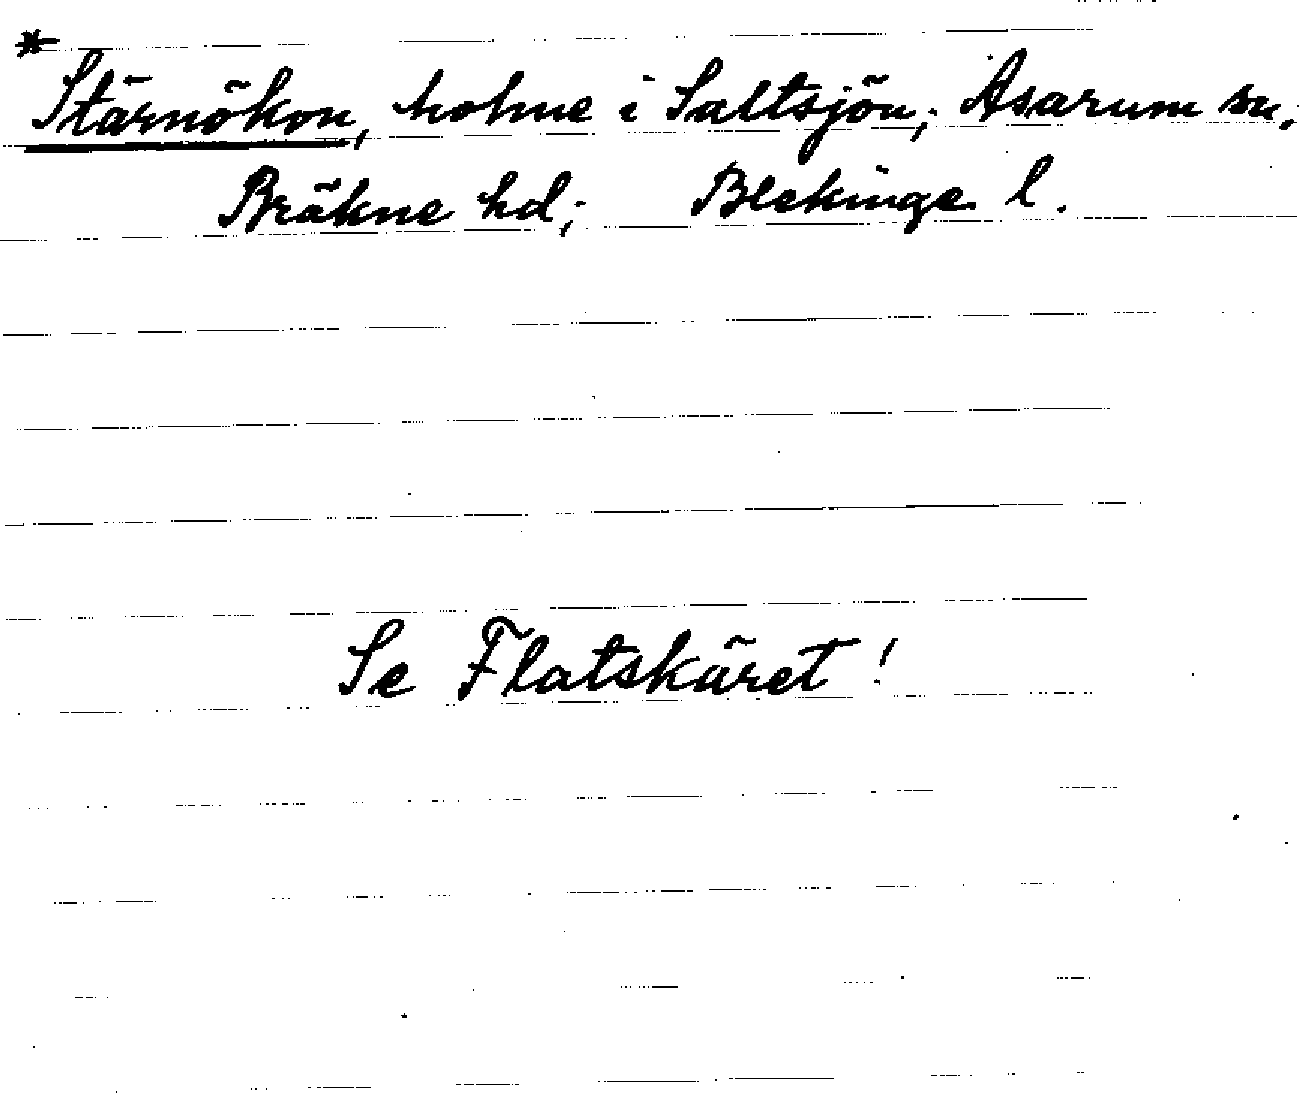 * Stärnökon, holme i Saltsjön; Asarum sn,
Bräkne hd; Blekinge l.
Se Flatskäret!